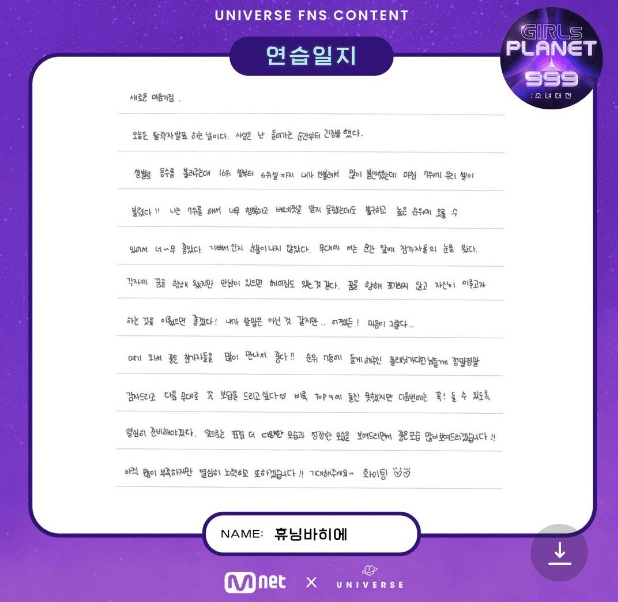 UNIVERSE FNS CONTENT
연습일지
GIRLS
PLANET
999
:소녀대전
새로운 마음가짐.
오늘은 탈락자발표 하는 날이다. 사실은 난 들어가는 순간부터 긴장을 했다.
등수를 불러주는데 내가 안불려서 많이 불안했는데 마침 7위에 우리 셀이
불렸다!! 나는 7위를 해서 너무 행복하고 베네핏을 받지 못했는데도 불구하고 높은 순위에 오를 수
있어서 너~무 좋았다. 기뻐서인지 눈물이 나지 않았다. 무대에 서는 순간 앞에 참가자들의 눈을 봤다.
각자의 꿈을 향해 왔지만 만남이 있으면 헤어짐도 있는 것 같다. 꿈을 향해 포기하지 않고 자신이 이루고자
하는 것을 이뤘으면 좋겠다! 내가 할말은 아닌 것 같지만.. 어쨌든! 마음이 그렇다..
여기 와서 좋은 참가자들을 많이 만나서 좋다!! 순위 7등에 들게 해주신 플래닛가디언님들께 정말정말
감사드리고 다음 무대로 꼭 보답을 드리고 싶다♡ 비록 Top 9에 들진 못했지만 다음번에는 꼭! 들 수 있도록
열심히 준비해야겠다. 앞으로는 더 다양한 모습과 성장한 모습을 보여드리면서 좋은 모습 많이 보여드리겠습니다!!
아직 많이 부족하지만 열심히 노력하고 또 하겠습니다!! 기대해주세요~ 화이팅!
NAME: 휴닝바히에
Mnet X UNIVERSE